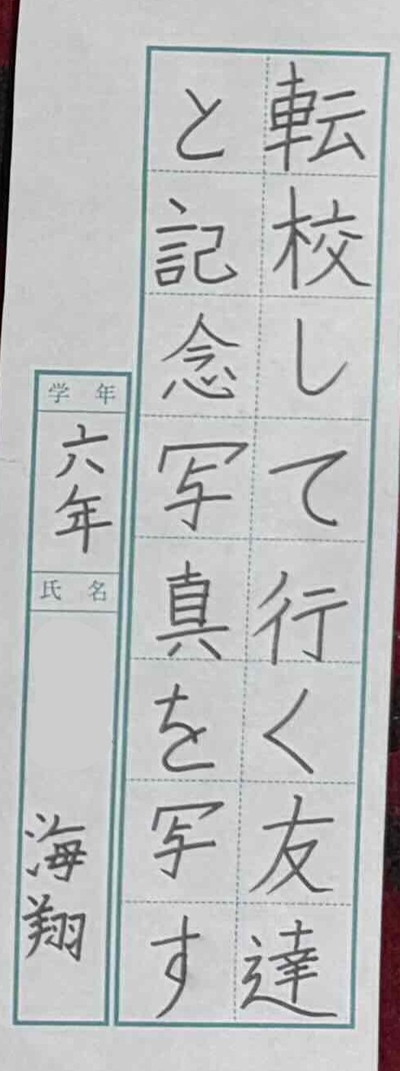 転校して行く友達
と記念写真を写す
学年
六年
氏名
海翔